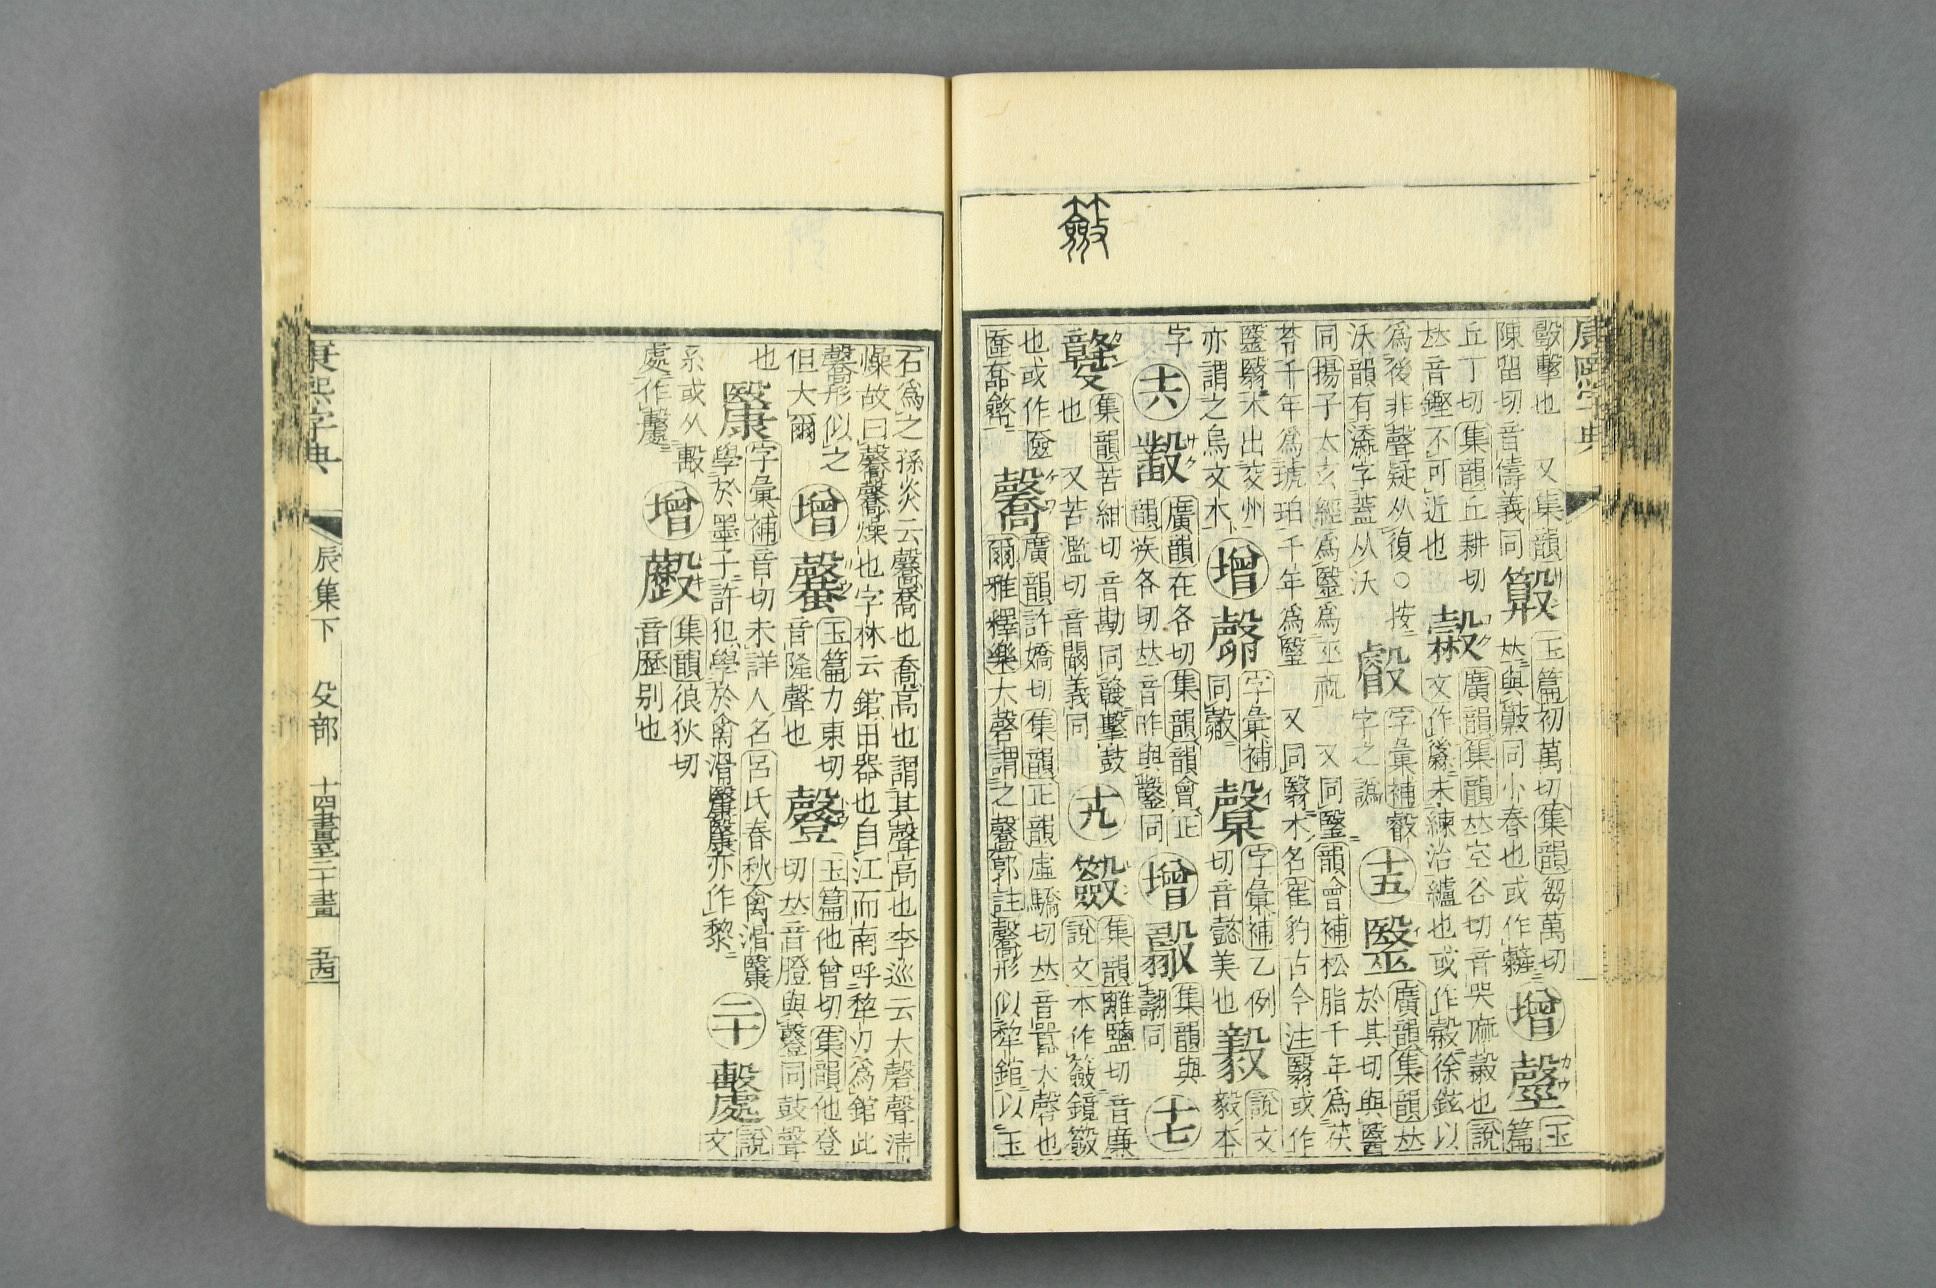 康熙字典
毄擊也 又集韻
陳留切音儔義同
丘丁切集韻丘耕切
𠀤音鏗不可近也
爲後非聲疑从復○按
沃韻有𣫎字蓋从沃
同揚子太玄經爲毉爲巫祝
苓千年爲琥珀千年爲瑿
瑿翳木出交州
亦謂之烏文木
字
玉篇初萬切集韻芻萬切
𠀤與𣪩同小舂也或作
增
玉篇
廣韻集韻𠀤空谷切音哭𪎭糓也說
文作 未練治纑也或作糓徐鉉以
字彙補㱾
字之譌
十五
毉
廣韻集韻𠀤
於其切與醫
又同毉韻會補松脂千年爲茯
又同翳木名崔豹古今注翳或作
增
字彙補
同㲉
字彙補乙例
切音懿美也
說文
毅本
十六
廣韻在各切集韻韻會正
韻疾各切𠀤音昨與鑿同
增
集韻與
翻同
十七
集韻苦紺切音勘同 擊鼓
也 又苦濫切音闞義同
十九
集韻離鹽切音廉
說文本作籢鏡籢
也或作匳
奩奁
廣韻許嬌切集韻正韻虛驕切𠀤音嚻大磬也
爾雅釋樂大磬謂之毊郭註毊形似犂錧以玉
籢
石爲之孫炎云毊喬也喬高也謂其聲高也李巡云大磬聲淸
燥故曰毊毊燥也字林云錧田器也自江而南呼犂刃爲錧此
毊形似之
但大爾
增
玉篇力東切
音隆聲也
玉篇他曾切集韻他登
切𠀤音鼟與鼟同鼓聲
也
字彙補音切未詳人名呂氏春秋禽滑
學於墨子許犯學於禽滑 亦作黎
二十
說
文
系或从
處作
增
集韻狼狄切
音歷别也
康熙字典
辰集下 殳部 十四畫至二十畫 五四